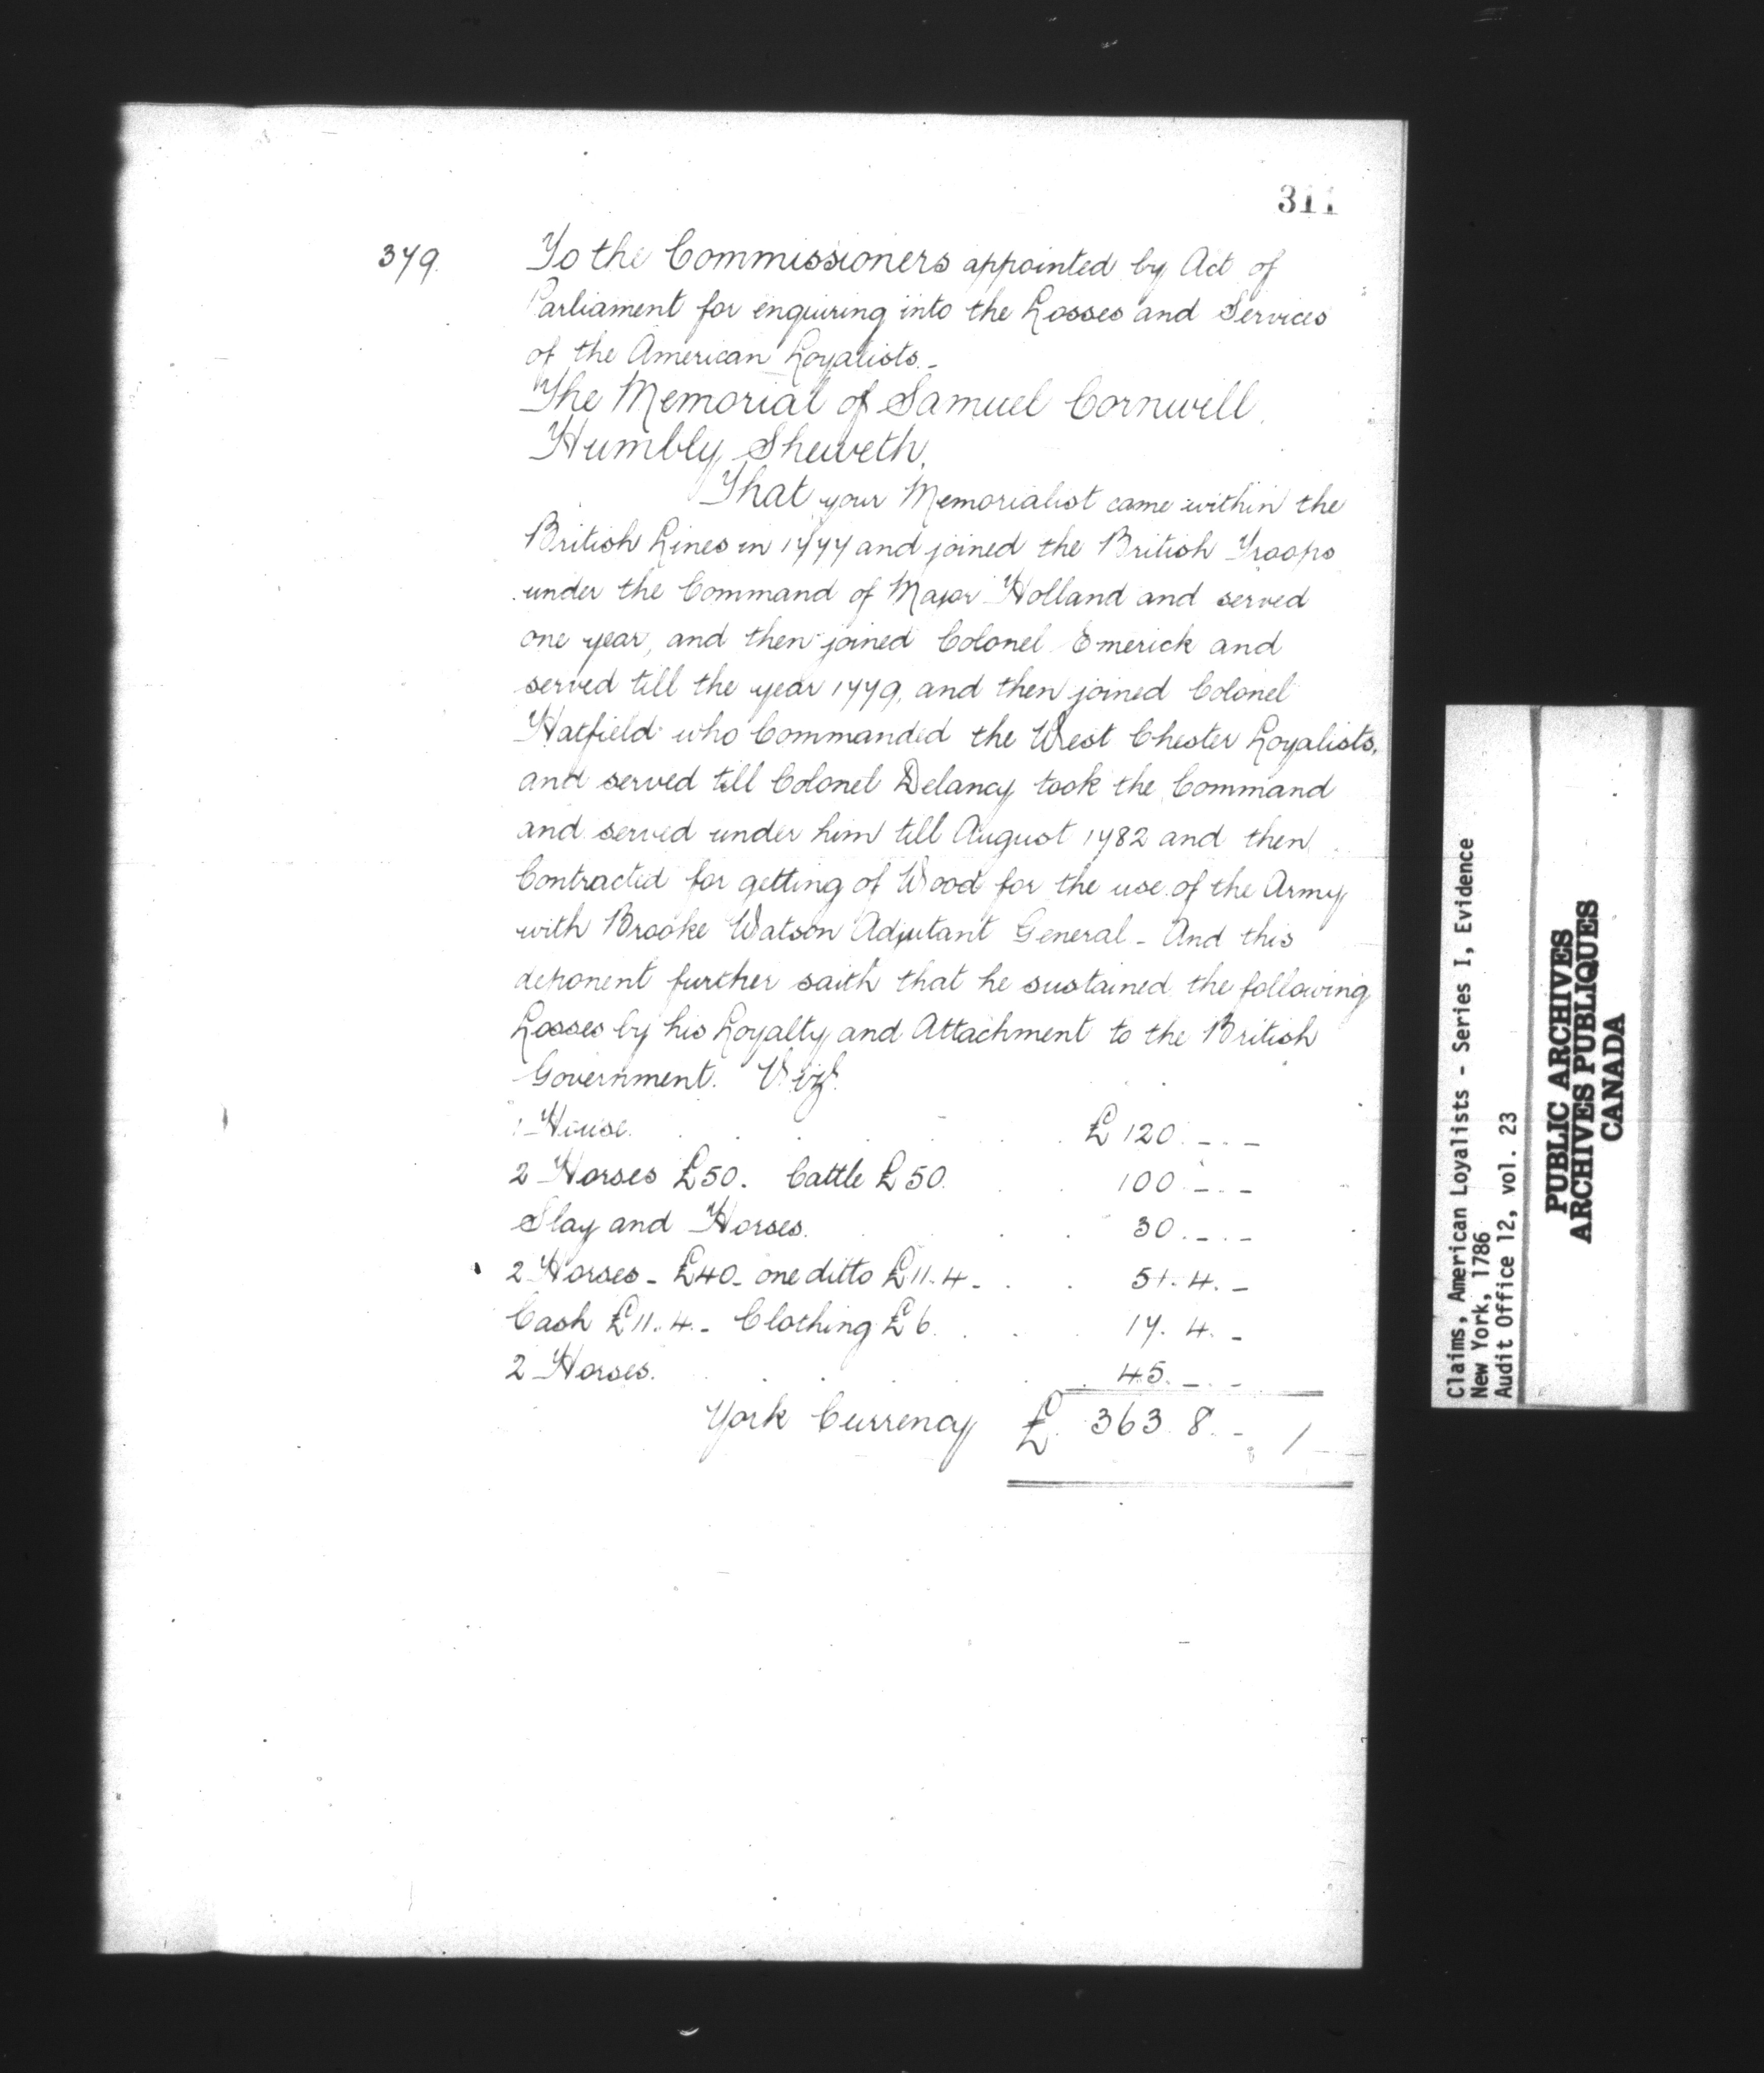 311
379.
To the Commissioners appointed by Act of
Parliament for enquiring into the Losses and Services
of the American Loyalists.-
The Memorial of Samuel Cornwill.
Humbly Sheweth.
That your Memorialist came within the
British Lines in 1777 and joined the British Troops
under the Command of Major Holland and served
one year, and then joined Colonel Emerick and
served till the year 1779, and then joined Colonel
Hatfield who Commanded the West Chester Loyalists,
and served till Colonel Delancy took the Command
and served under him till August 1782 and then
Contracted for getting of Wood for the use of the Army
with Brooke Watson Adjutant General - And this
deponent further saith that he sustained the following
Losses by his Loyalty and Attachment to the British
Government. Vizt.
1 House. £ 120. - . -
2 Horses £50. Cattle £50. 100. - . -
Slay and Horses. 30. - . -
2 Horses - £40 - one ditto £11.4 - 51. 4. -
Cash £11.4. - Clothing £6. 17. 4. -
2 Horses. 45. - . -
York Currency £. 363. 8. -
Claims, American Loyalists - Series I, Evidence
New York, 1786
Audit Office 12, vol. 23
PUBLIC ARCHIVES
ARCHIVES PUBLIQUES
CANADA